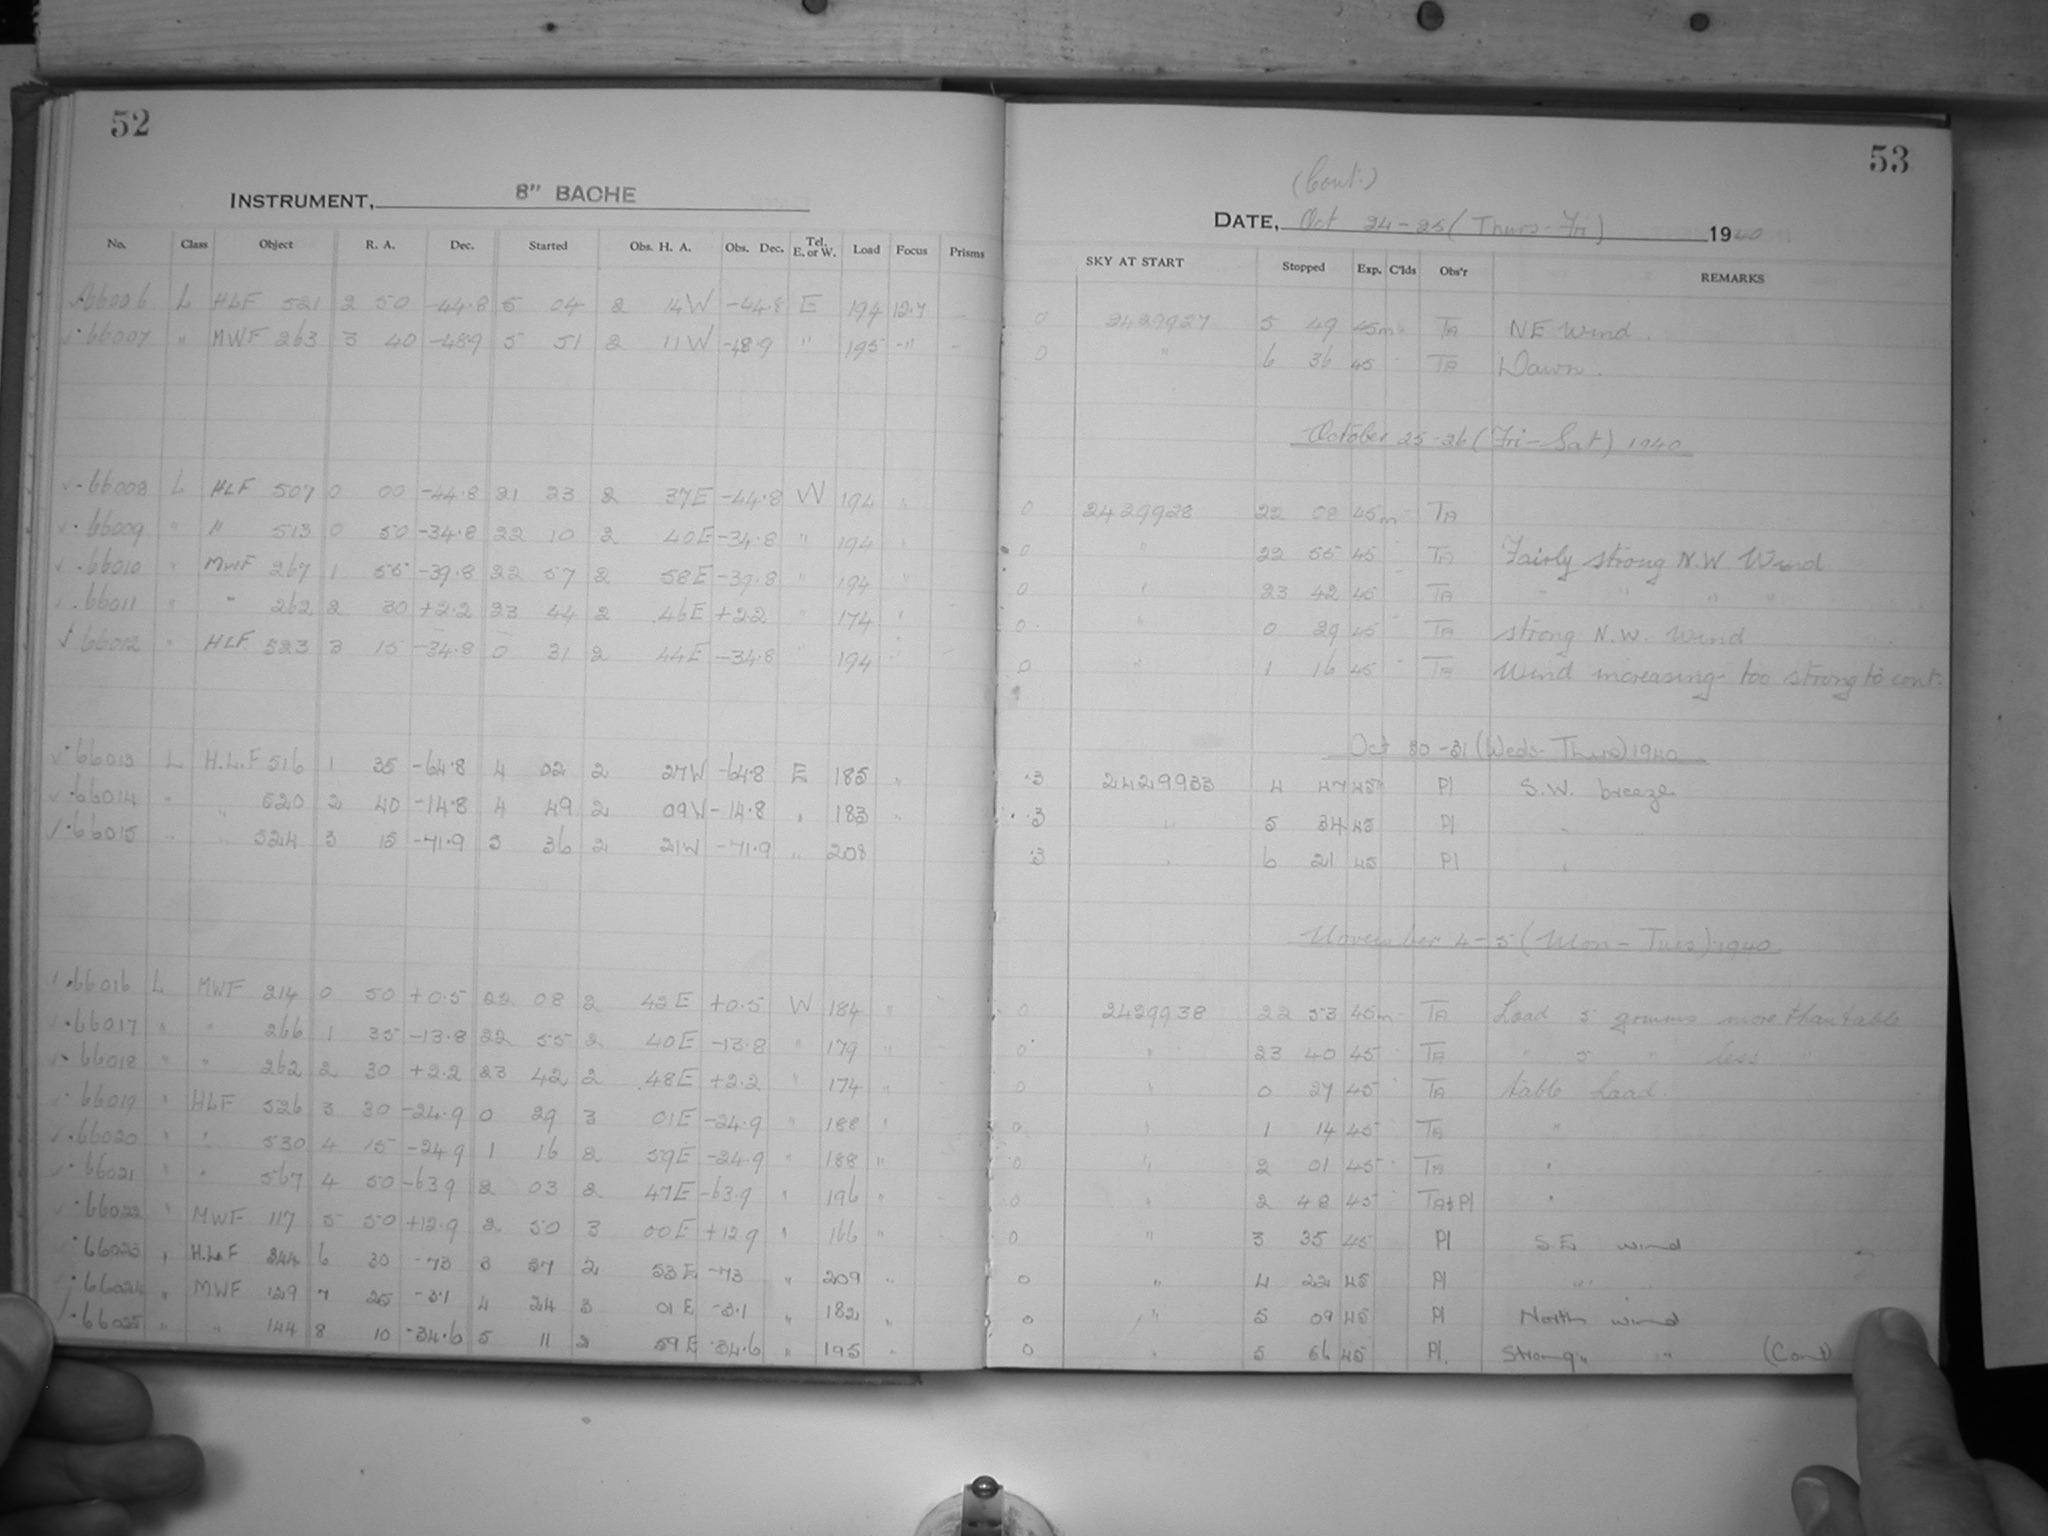 52
INSTRUMENT, 8" BACHE
No. Class Object R. A. Dec. Started Obs. H. A. Obs. Dec. Tel. E. or W. Load Focus Prisms
66006 L HLF 521 2 50 -44.8 5 04 2 14W -44.8 E 194 12.7 -
66007 " MWF 263 3 40 -48.9 5 51 2 11W -48.9 " 195 -"- -
66008 L HLF 507 0 00 -44.8 21 23 2 37E -44.8 W 194 "
66009 " " 513 0 50 -34.8 22 10 2 40E -34.8 " 194 "
66010 " MWF 267 1 55 -39.8 22 57 2 58E -39.8 " 194 "
66011 " " 262 2 30 +2.2 23 44 2 46E +2.2 " 174 "
66012 " HLF 523 3 15 -34.8 0 31 2 44E -34.8 " 194 "
66013 L H.L.F 516 1 35 -64.8 4 02 2 27W -64.8 E 185 "
66014 " " 520 2 40 -14.8 4 49 2 09W -14.8 " 183 "
66015 " " 524 3 15 -71.9 5 36 2 21W -71.9 " 208
66016 L MWF 214 0 50 +0.5 22 08 2 42E +0.5 W 184 "
66017 " " 266 1 35 -13.8 22 55 2 40E -13.8 " 179 "
66018 " " 262 2 30 +2.2 23 42 2 48E +2.2 " 174 "
66019 " HLF 526 3 30 -24.9 0 29 3 01E -24.9 " 188 "
66020 " " 530 4 15 -24.9 1 16 2 59E -24.9 " 188 "
66021 " " 567 4 50 -63.9 2 03 2 47E -63.9 " 196 "
66022 " MWF 117 5 50 +12.9 2 50 3 00E +12.9 " 166 "
66023 " H.L.F 344 6 30 -73 3 37 2 53E -73 " 209 "
66024 " MWF 129 7 25 -3.1 4 24 3 01E -3.1 " 182 "
66025 " " 144 8 10 -34.6 5 11 2 59E -34.6 " 195 "
53
(Cont.)
DATE, Oct 24-25 (Thurs-Fri) 1940
SKY AT START Stopped Exp. C'lds Obs'r REMARKS
0 2429927 5 49 45m TA NE Wind.
0 " 6 36 45 TA Dawn.
October 25-26 (Fri-Sat) 1940
0 2429928 22 08 45m TA
0 " 22 55 45 TA Fairly strong N.W. Wind
0 " 23 42 45 TA " " " "
0 " 0 29 45 TA strong N.W. Wind
0 " 1 16 45 TA Wind increasing - too strong to cont.
Oct 30-31 (Weds-Thurs) 1940
3 2429933 4 47 45m Pl S.W. breeze
3 " 5 34 45 Pl " "
3 " 6 21 45 Pl "
November 4-5 (Mon-Tues) 1940
0 2429938 22 53 45m TA Load 5 gramms more than table
0 " 23 40 45 TA " 5 " less "
0 " 0 27 45 TA table Load.
0 " 1 14 45 TA "
0 " 2 01 45 TA "
0 " 2 48 45 TA & Pl "
0 " 3 35 45 Pl S.E. wind
0 " 4 22 45 Pl " "
0 " 5 09 45 Pl North wind
0 " 5 56 45 Pl. Strong " " (Cont)